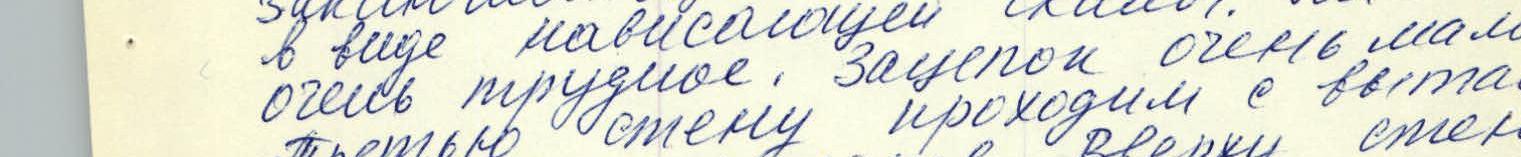 в виде нависающей скалы.
очень трудное. Зацепок очень мало
Третью стену проходим с выта
Вверху стен